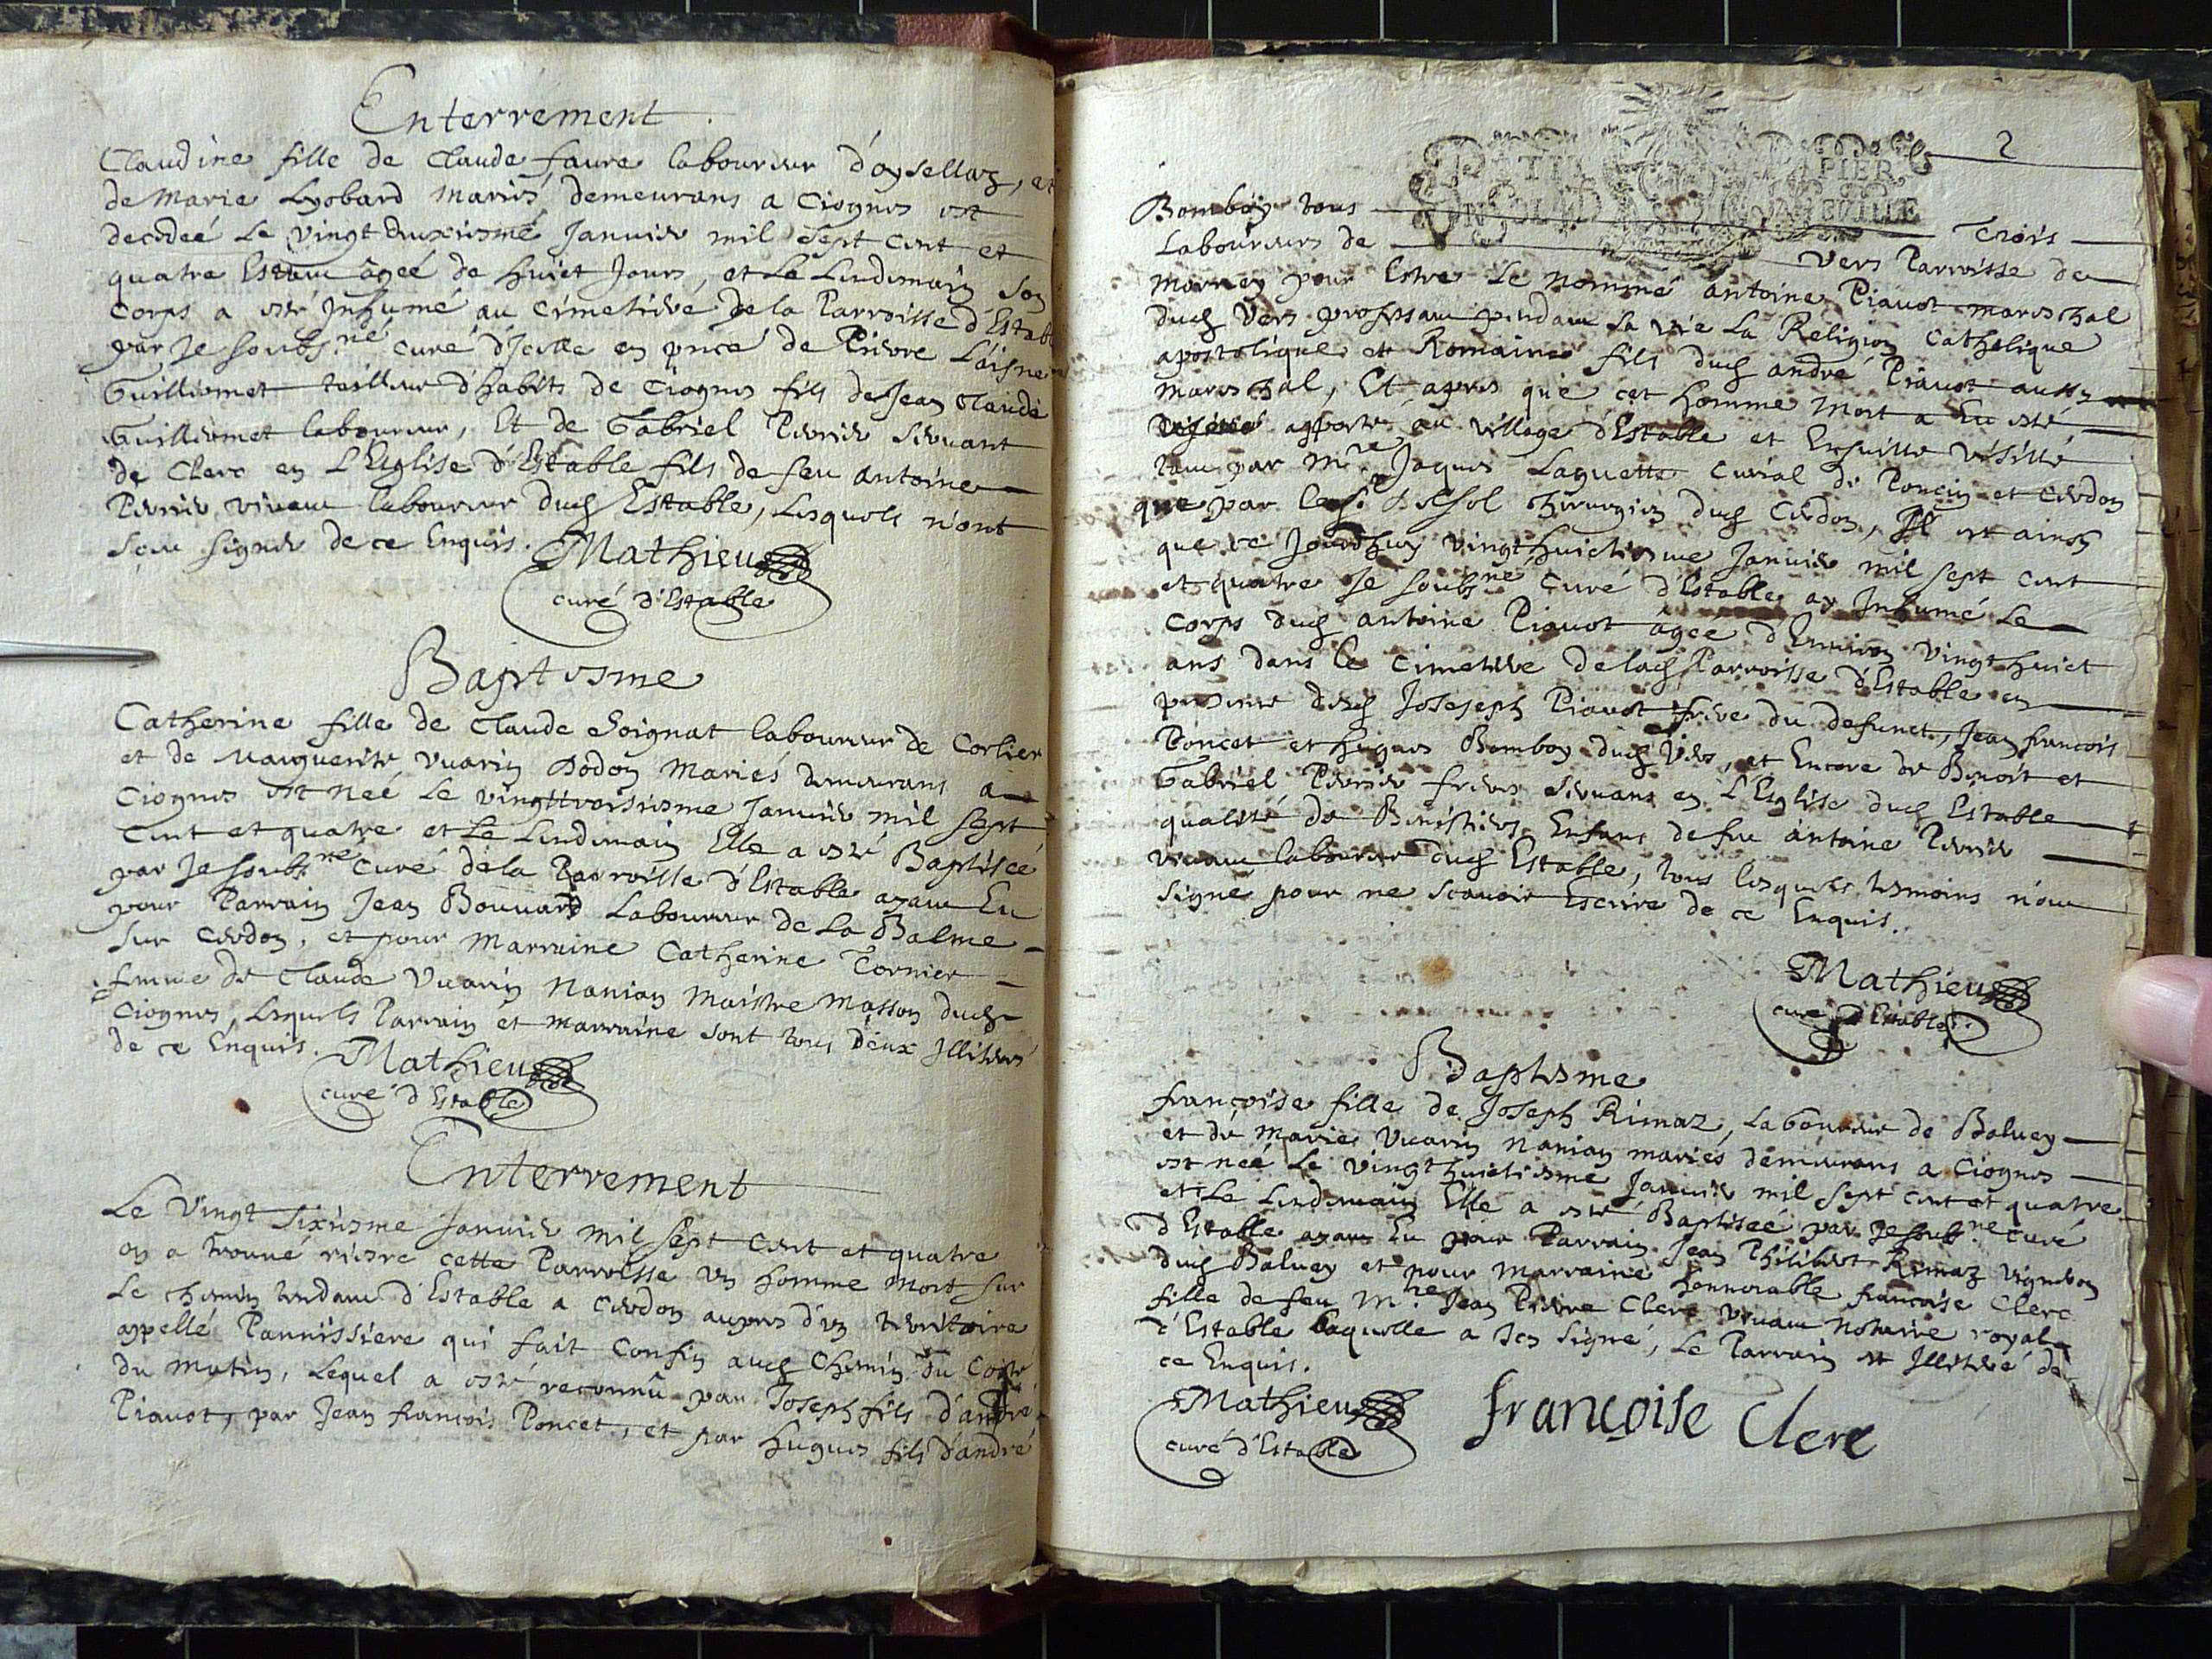 Enterrement
Claudine fille de Claude faure laboureur d'oysellaz, et
de Marie Lyobard mariés demeurans a Ciognes est
decedeé le vingt deuxiesme Janvier mil sept cent et
quatre Estant âgeé de huict Jours, et le Lendemain son
corps a esté Inhumé au Cimetiere de la Parroisse d'Estable
par je soubs.né curé d'Icelle en pnce de Pierre Laisne
Guilliemet tailleur d'habits de Ciognes fils de Jean Claude
Guilliemet laboureur, Et de Gabriel Perrier servant
de Clerc en L'Esglise d'Estable fils de feu antoine
Perrier vivant laboureur dud Estable, lesquels n'ont
sçeu signer de ce Enquis. Mathieu
curé d'Estable
Baptesme
Catherine fille de Claude Soignat laboureur de Corlier
et de Marguerite Vuarin Dodon Mariés demeurans a
Ciognes est neé le vingttroisiesme Janvier mil sept
Cent et quatre et Le Lendemain Elle a esté Baptiseé
par Je soubs.né Curé dela Parroisse d'Estable ayant Eu
pour Parrain Jean Bouvard Laboureur de La Balme
sur Cerdon, et pour Marraine Catherine Tornier
femme de Claude Vuarin Nanian Maistre Masson dud
Ciognes, Lesquels Parrain et Marraine sont tous deux Illiterés
de ce Enquis. Mathieu
curé d'Estable
Enterrement
Le Vingt sixiesme Janvier mil sept Cent et quatre
on a trouué riere cette Parroisse un homme mort sur
Le chemin tendant d'Estable a Cerdon aupres d'un territoire
appellé Pannissiere qui fait Confin aud Chemin du Costé
du Matin, Lequel a esté reconnû par Joseph fils d'andré
Piauot, par Jean francois Poncet, et par hugues fils d'andré
2
Bomboy tous Trois
Laboureurs de Vers Parroisse de
Mornay pour Estre Le Nommé antoine Piauot mareschal
dud Vers professant pendant sa vie La Religion Catholique
apostolique et Romaine fils dud andré Piauot aussy
mareschal, Et apres que cet homme Mort a Eu esté
apporté au village d'Estable et Ensuitte visitté
tant par M.re Jaques Laguette Curial de Poncin et Cerdon
que par le s. Chirurgien dud Cerdon, Il est ainsy
que ce Jourdhuy vingthuictiesme Janvier mil sept cent
et quatre Je soubs.né Curé d'Estable ay Inhumé Le
Corps dud antoine Piauot âgeé d'Environ vingthuict
ans dans le Cimetiere de lad Parroisse d'Estable en
presence dud Josejeph Piauot frere du defunct, Jean francois
Poncet et hugues Bomboy dud Vers, et Encore de Benoit et
Gabriel Perrier freres servans en L'Esglise dud Estable
qualité de Benistiers Enfans de feu antoine Perrier
vivant laboureur dud Estable, tous lesquels tesmoins n'ont
signé pour ne scauoir Escrire de ce Enquis.
Mathieu
curé d'Estable
Baptesme
françoise fille de Joseph Rimaz, Laboureur de Boluey
et de Marie Vuarin Nanian mariés demeurans a Ciognes
est neé Le vingthuictiesme Janvier mil sept cent et quatre
et Le Lendemain Elle a esté Baptiseé par Je soub.né Curé
d'Estable ayant Eu pour Parrain Jean Philibert Rimaz Vigneron
dud Boluey et pour Marraine honnorable françoise Clerc
fille de feu M.re Jean Pierre Clerc vivant Notaire royal
d'Estable laquelle a sçeu signé, Le Parrain est Illiteré de
ce Enquis.
Mathieu
curé d'Estable
françoise Clerc